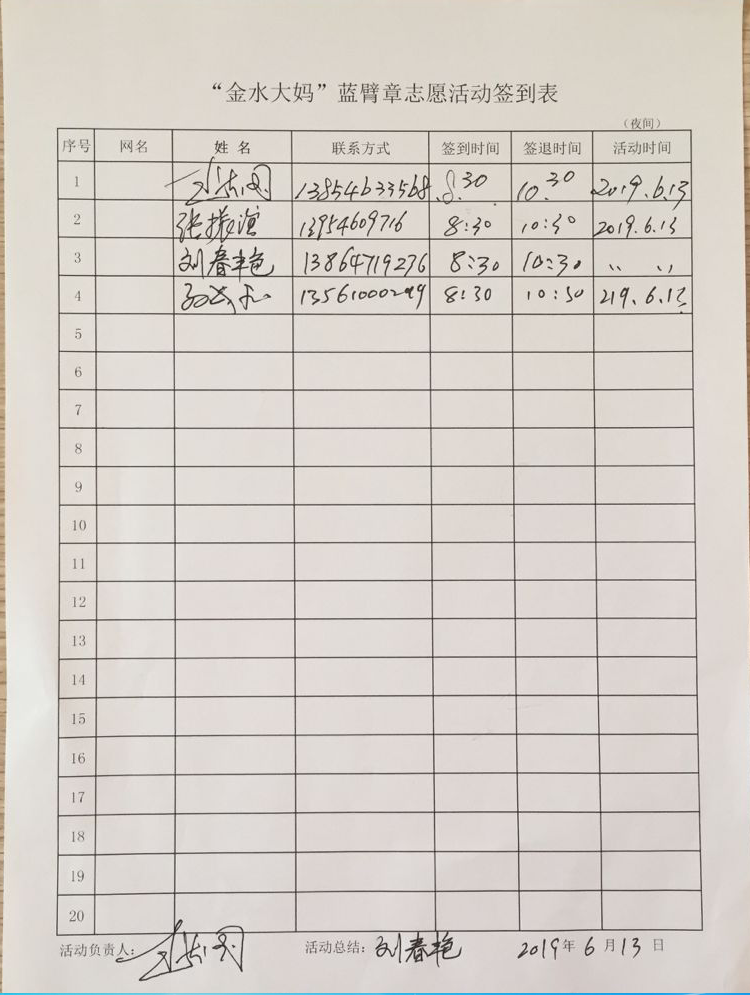 “金水大妈”蓝臂章志愿活动签到表
（夜间）
序号 网名 姓名 联系方式 签到时间 签退时间 活动时间
1 13854633568 8.30 10.30 2019.6.13
2 张振 13954609716 8:30 10:30 2019.6.13
3 刘春艳 13864719276 8:30 10:30 〃 〃
4 8:30 10:30 219.6.13
5
6
7
8
9
10
11
12
13
14
15
16
17
18
19
20
活动负责人： 活动总结：刘春艳 2019年6月13日